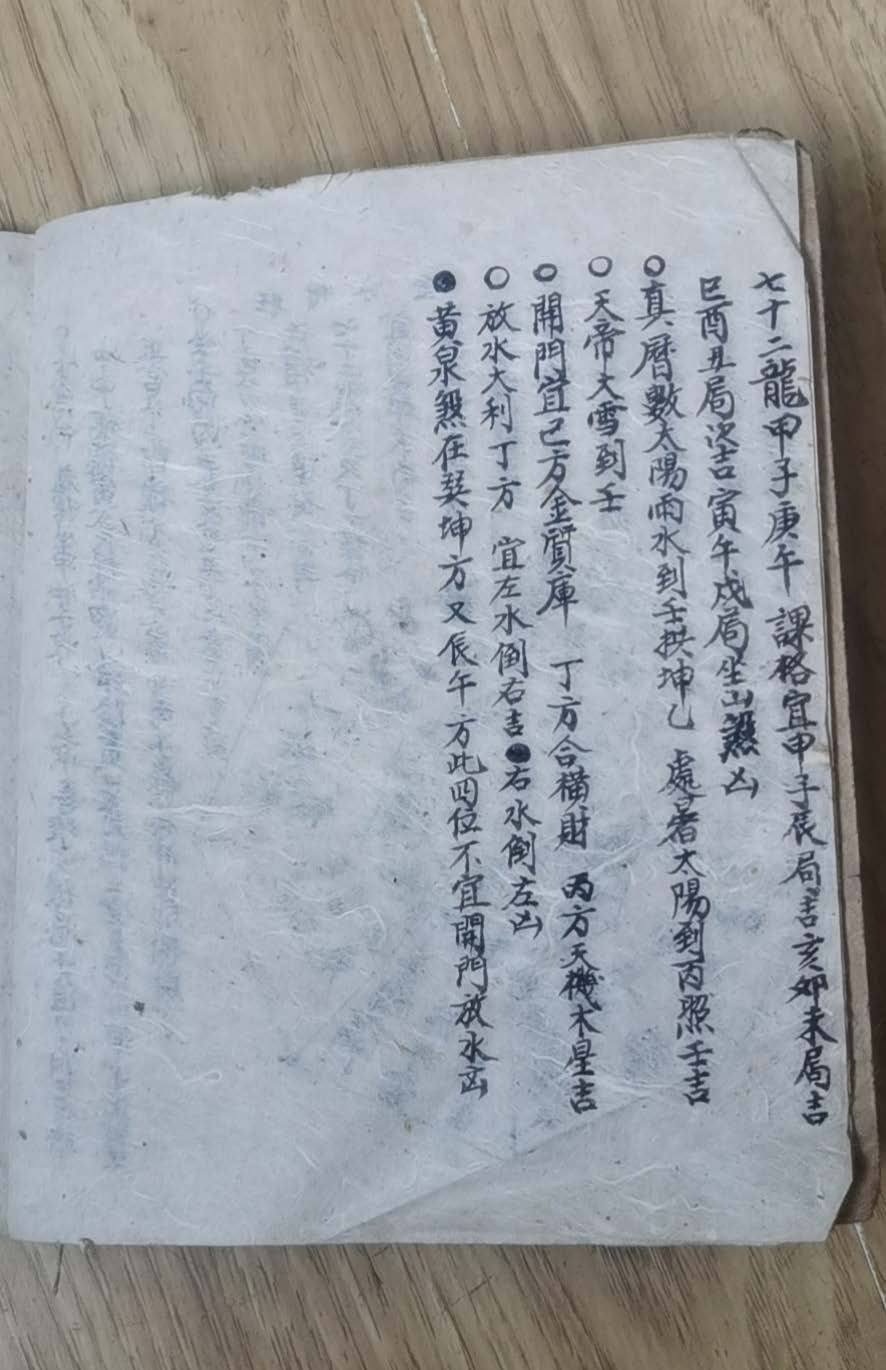 七十二龍甲子庚午　課格宜甲子辰局吉亥卯未局吉
巳酉丑局次吉寅午戌局坐山煞凶
○真曆數太陽雨水到壬拱坤乙　處暑太陽到丙照壬吉
○天帝大雪到壬
○開門宜巳方金質庫　丁方合橫財　丙方天機木星吉
○放水大利丁方　宜左水倒右吉●右水倒左凶
●黃泉煞在巽坤方又辰午方此四位不宜開門放水凶